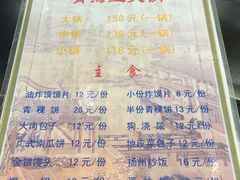 大锅 158元(一锅)
中锅 138元(一锅)
小锅 118元(一锅)
主食
油炸馍馍片 12元/份
小份炸馍馍片 8元/份
青稞饼 26元/份
半份青稞饼 13元/份
大肉包子 12元/份
狗浇尿 12元/份
广式南瓜饼 12元/份
地皮菜包子 12元/份
金银馒头 12元/份
扬州炒饭 16元/份